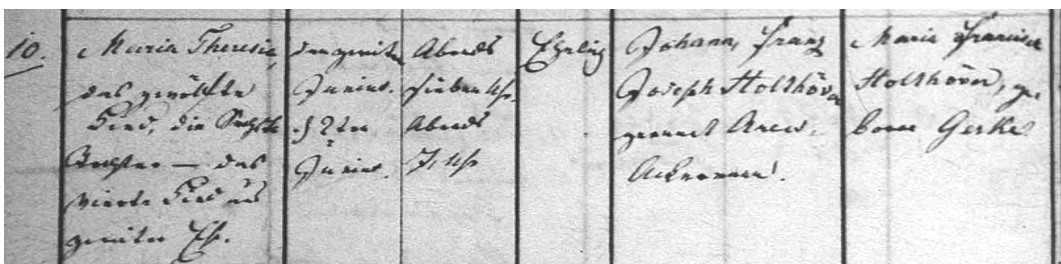 10.
Maria Theresia,
das zwölfte
Kind, die Sechste
Tochter — das
vierte Kind aus
zweiter Ehe.
den zweiten
Junius.
§ 2ten
Junius.
Abends
sieben Uhr.
Abends
7, Uhr
Ehelig
Johann, Franz
Joseph Holthöver
genannt
Ackermann.
Maria Francisca
Holthöver, ge,
borne Gerke